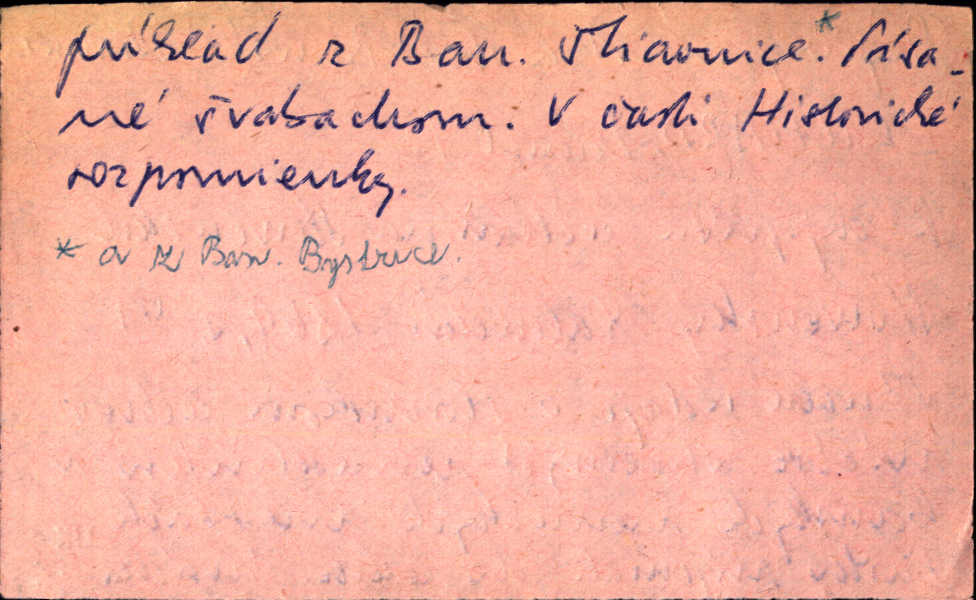 príklad z Ban. Štiavnice.* Písa-
né švabachom. V časti Historické
rozpomienky.
* a z Ban. Bystrice.